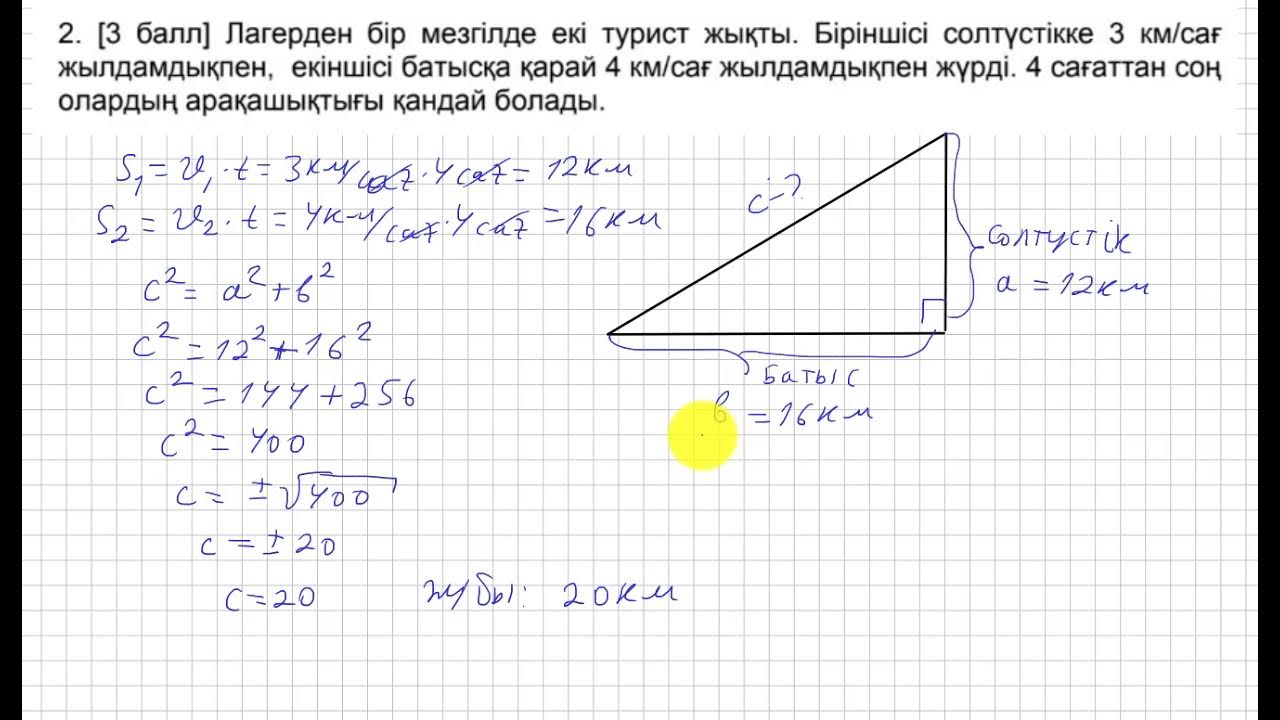 2. [3 балл] Лагерден бір мезгілде екі турист жықты. Біріншісі солтүстікке 3 км/сағ
жылдамдықпен, екіншісі батысқа қарай 4 км/сағ жылдамдықпен жүрді. 4 сағаттан соң
олардың арақашықтығы қандай болады.
S₁ = υ₁ · t = 3 км/сағ · 4 сағ = 12 км
S₂ = υ₂ · t = 4 км/сағ · 4 сағ = 16 км
c² = a² + b²
c² = 12² + 16²
c² = 144 + 256
c² = 400
c = ±√400
c = ± 20
c = 20
Жубы: 20 км
c - ?
Солтустік
a = 12 км
Батыс
b = 16 км